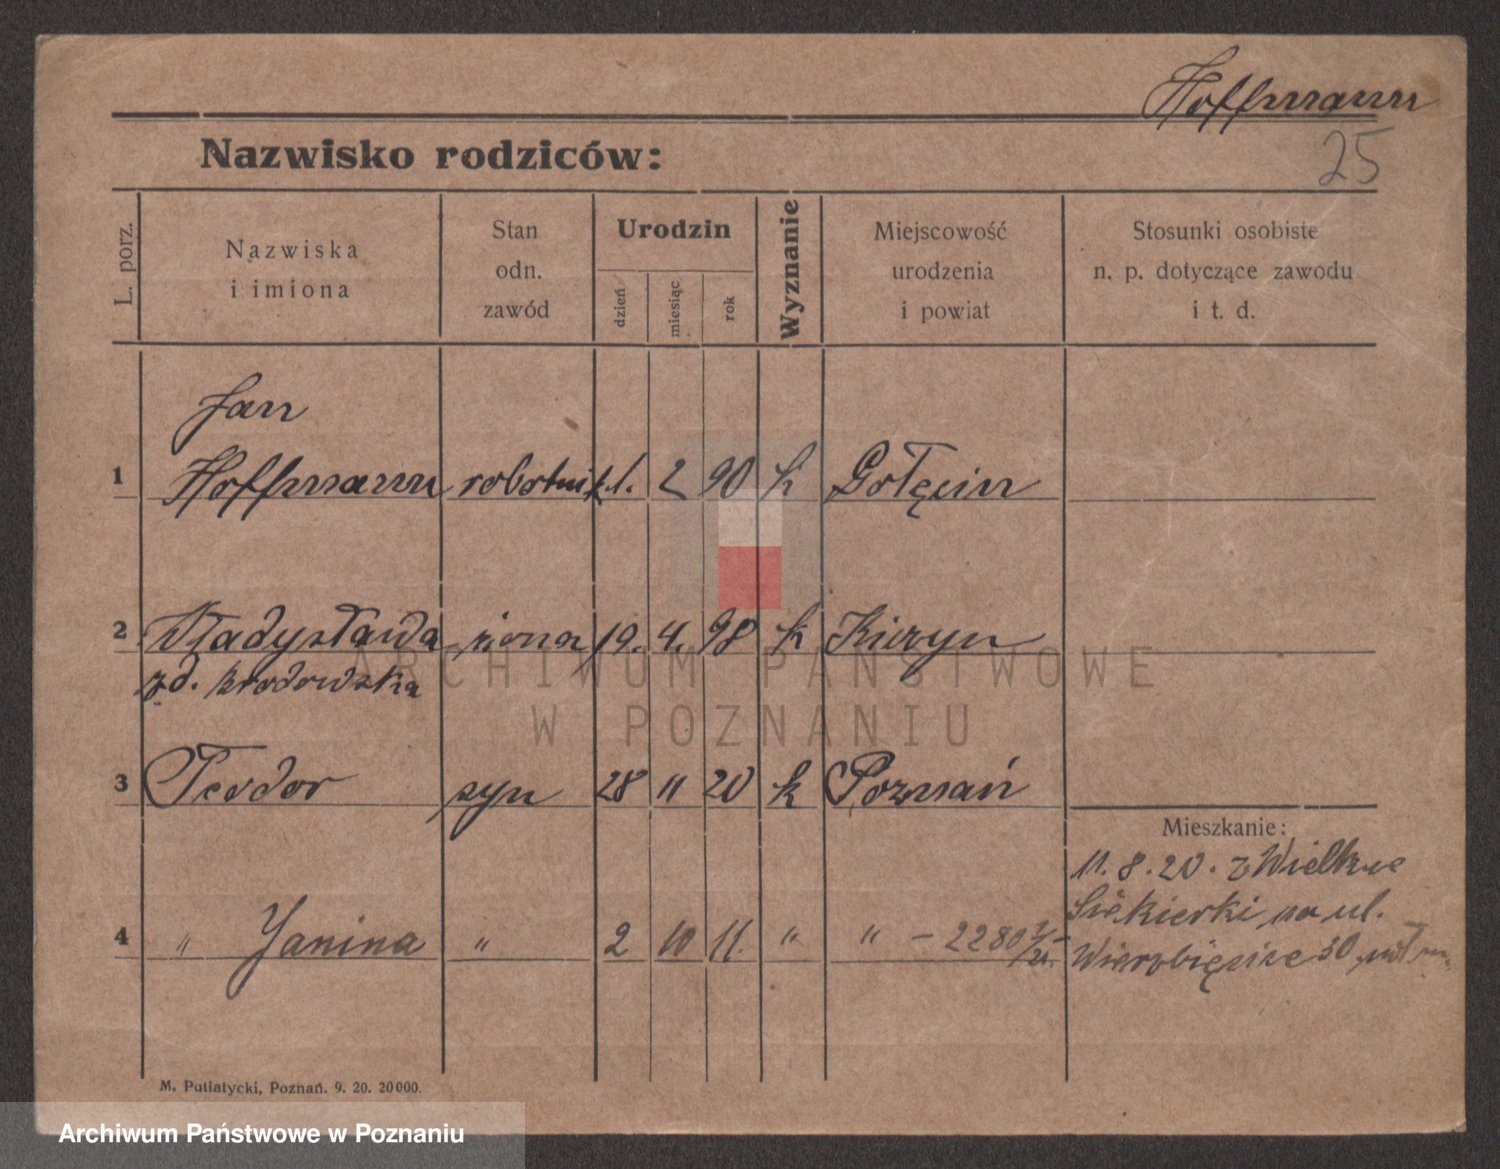 Hoffmann
25
Nazwisko rodziców:
L. porz.
Nazwiska
i imiona
Stan
odn.
zawód
Urodzin
dzień
miesiąc
rok
Wyznanie
Miejscowość
urodzenia
i powiat
Stosunki osobiste
n. p. dotyczące zawodu
i t. d.
Jan
1 Hoffmann robotnik 1. 2 90 k Gołęcin
2 Władysława żona 19. 4. 98 k Kiczyn
zd. Brodowska
3 Teodor syn 28 11 20 k Poznań
Mieszkanie:
11. 8. 20. z Wielkie
Siekierki na ul.
4 " Janina " 2 10 11. " " - 2280
Wierzbięcice 30
M. Putiatycki, Poznań. 9. 20. 20000.
ARCHIWUM PAŃSTWOWE
W POZNANIU
Archiwum Państwowe w Poznaniu